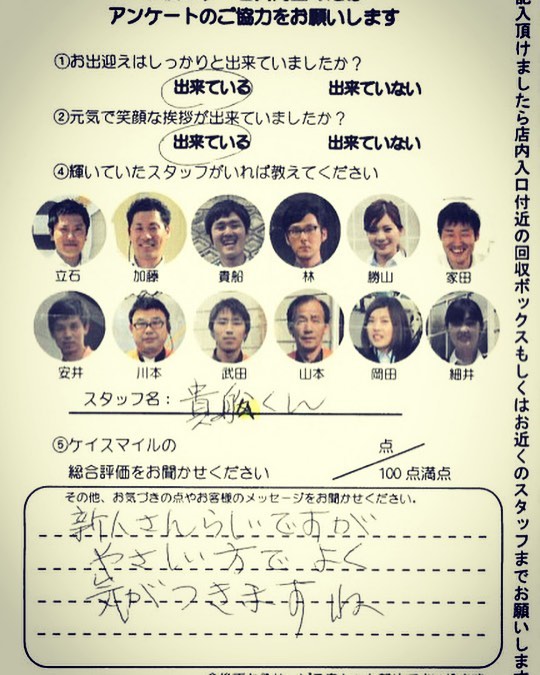 アンケートのご協力をお願いします
①お出迎えはしっかりと出来ていましたか？
出来ている 出来ていない
②元気で笑顔な挨拶が出来ていましたか？
出来ている 出来ていない
④輝いていたスタッフがいれば教えてください
立石 加藤 貴船 林 勝山 家田
安井 川本 武田 山本 岡田 細井
スタッフ名：貴船くん
⑤ケイスマイルの 点
総合評価をお聞かせください 100点満点
その他、お気づきの点やお客様のメッセージをお聞かせください。
新人さんらしいですが
やさしい方で よく
気がつきますね
記入頂けましたら店内入口付近の回収ボックスもしくはお近くのスタッフまでお願いします